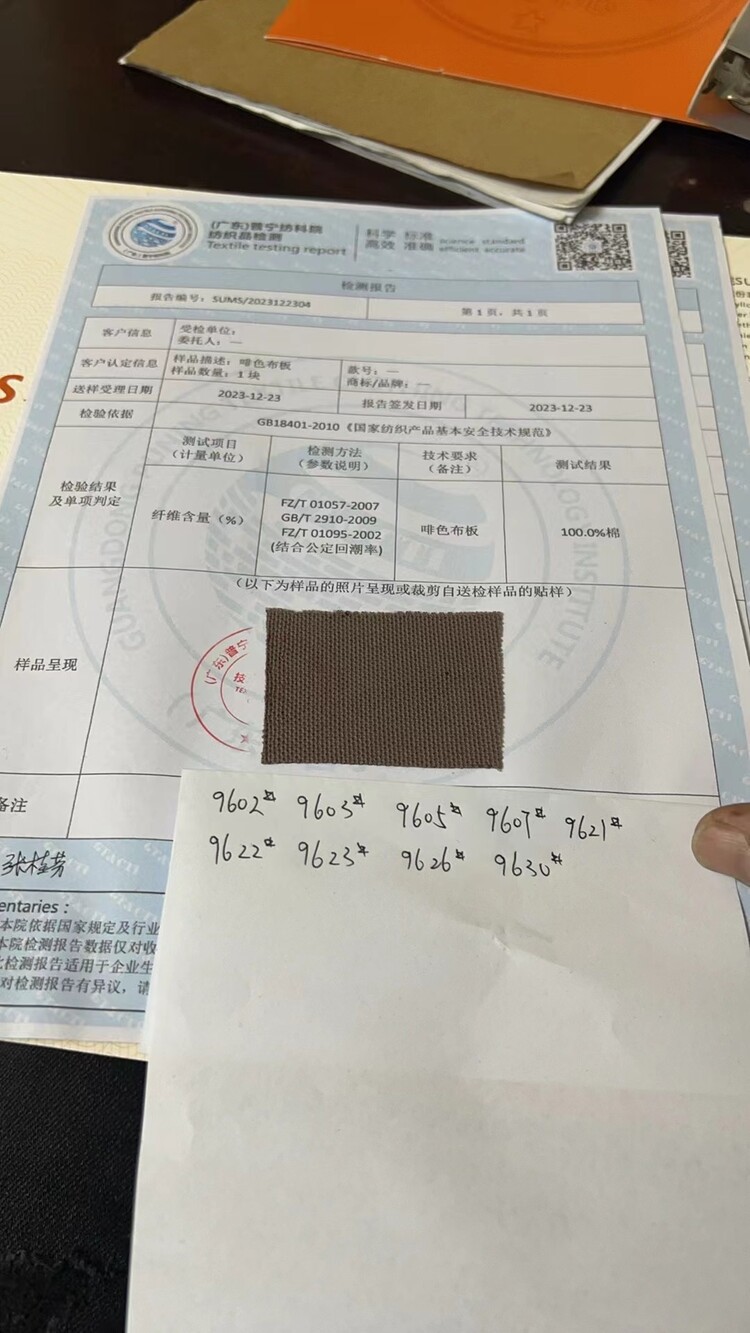 (广东)普宁纺科院
纺织品检测
Textile testing report
科学 标准
高效 准确
science standard
efficient accurate
检测报告
报告编号：SUMS/2023122304
第1页，共1页
客户信息
受检单位：
委托人：—
客户认定信息
样品描述：啡色布板
样品数量：1块
款号：—
商标/品牌：—
送样受理日期
2023-12-23
报告签发日期
2023-12-23
检验依据
GB18401-2010《国家纺织产品基本安全技术规范》
检验结果
及单项判定
测试项目
（计量单位）
检测方法
（参数说明）
技术要求
（备注）
测试结果
纤维含量（%）
FZ/T 01057-2007
GB/T 2910-2009
FZ/T 01095-2002
(结合公定回潮率)
啡色布板
100.0%棉
（以下为样品的照片呈现或裁剪自送检样品的贴样）
样品呈现
(广东)普宁
技
备注
9602# 9603# 9605# 9607# 9621#
9622# 9623# 9626# 9630#
entaries：
本院依据国家规定及行业
本院检测报告数据仅对收
检测报告适用于企业生
对检测报告有异议，请